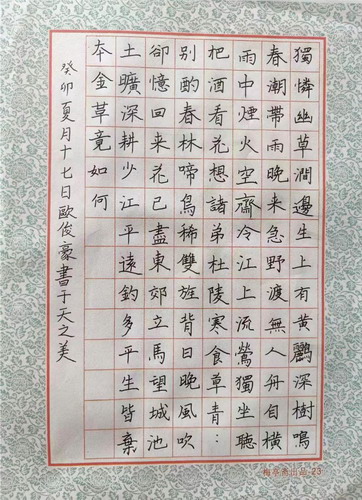 獨憐幽草澗邊生上有黃鸝深樹鳴
春潮帶雨晚来急野渡無人舟自橫
雨中煙火空齋冷江上流鶯獨坐聽
把酒看花想諸弟杜陵寒食草青:
別酌春林啼鳥稀雙旌背日晚風吹
卻憶回来花已盡東郊立馬望城池
土曠深耕少江平遠釣多平生皆棄
夲金草竟如何
癸卯夏月十七日歐俊豪書于天之美
出品-23